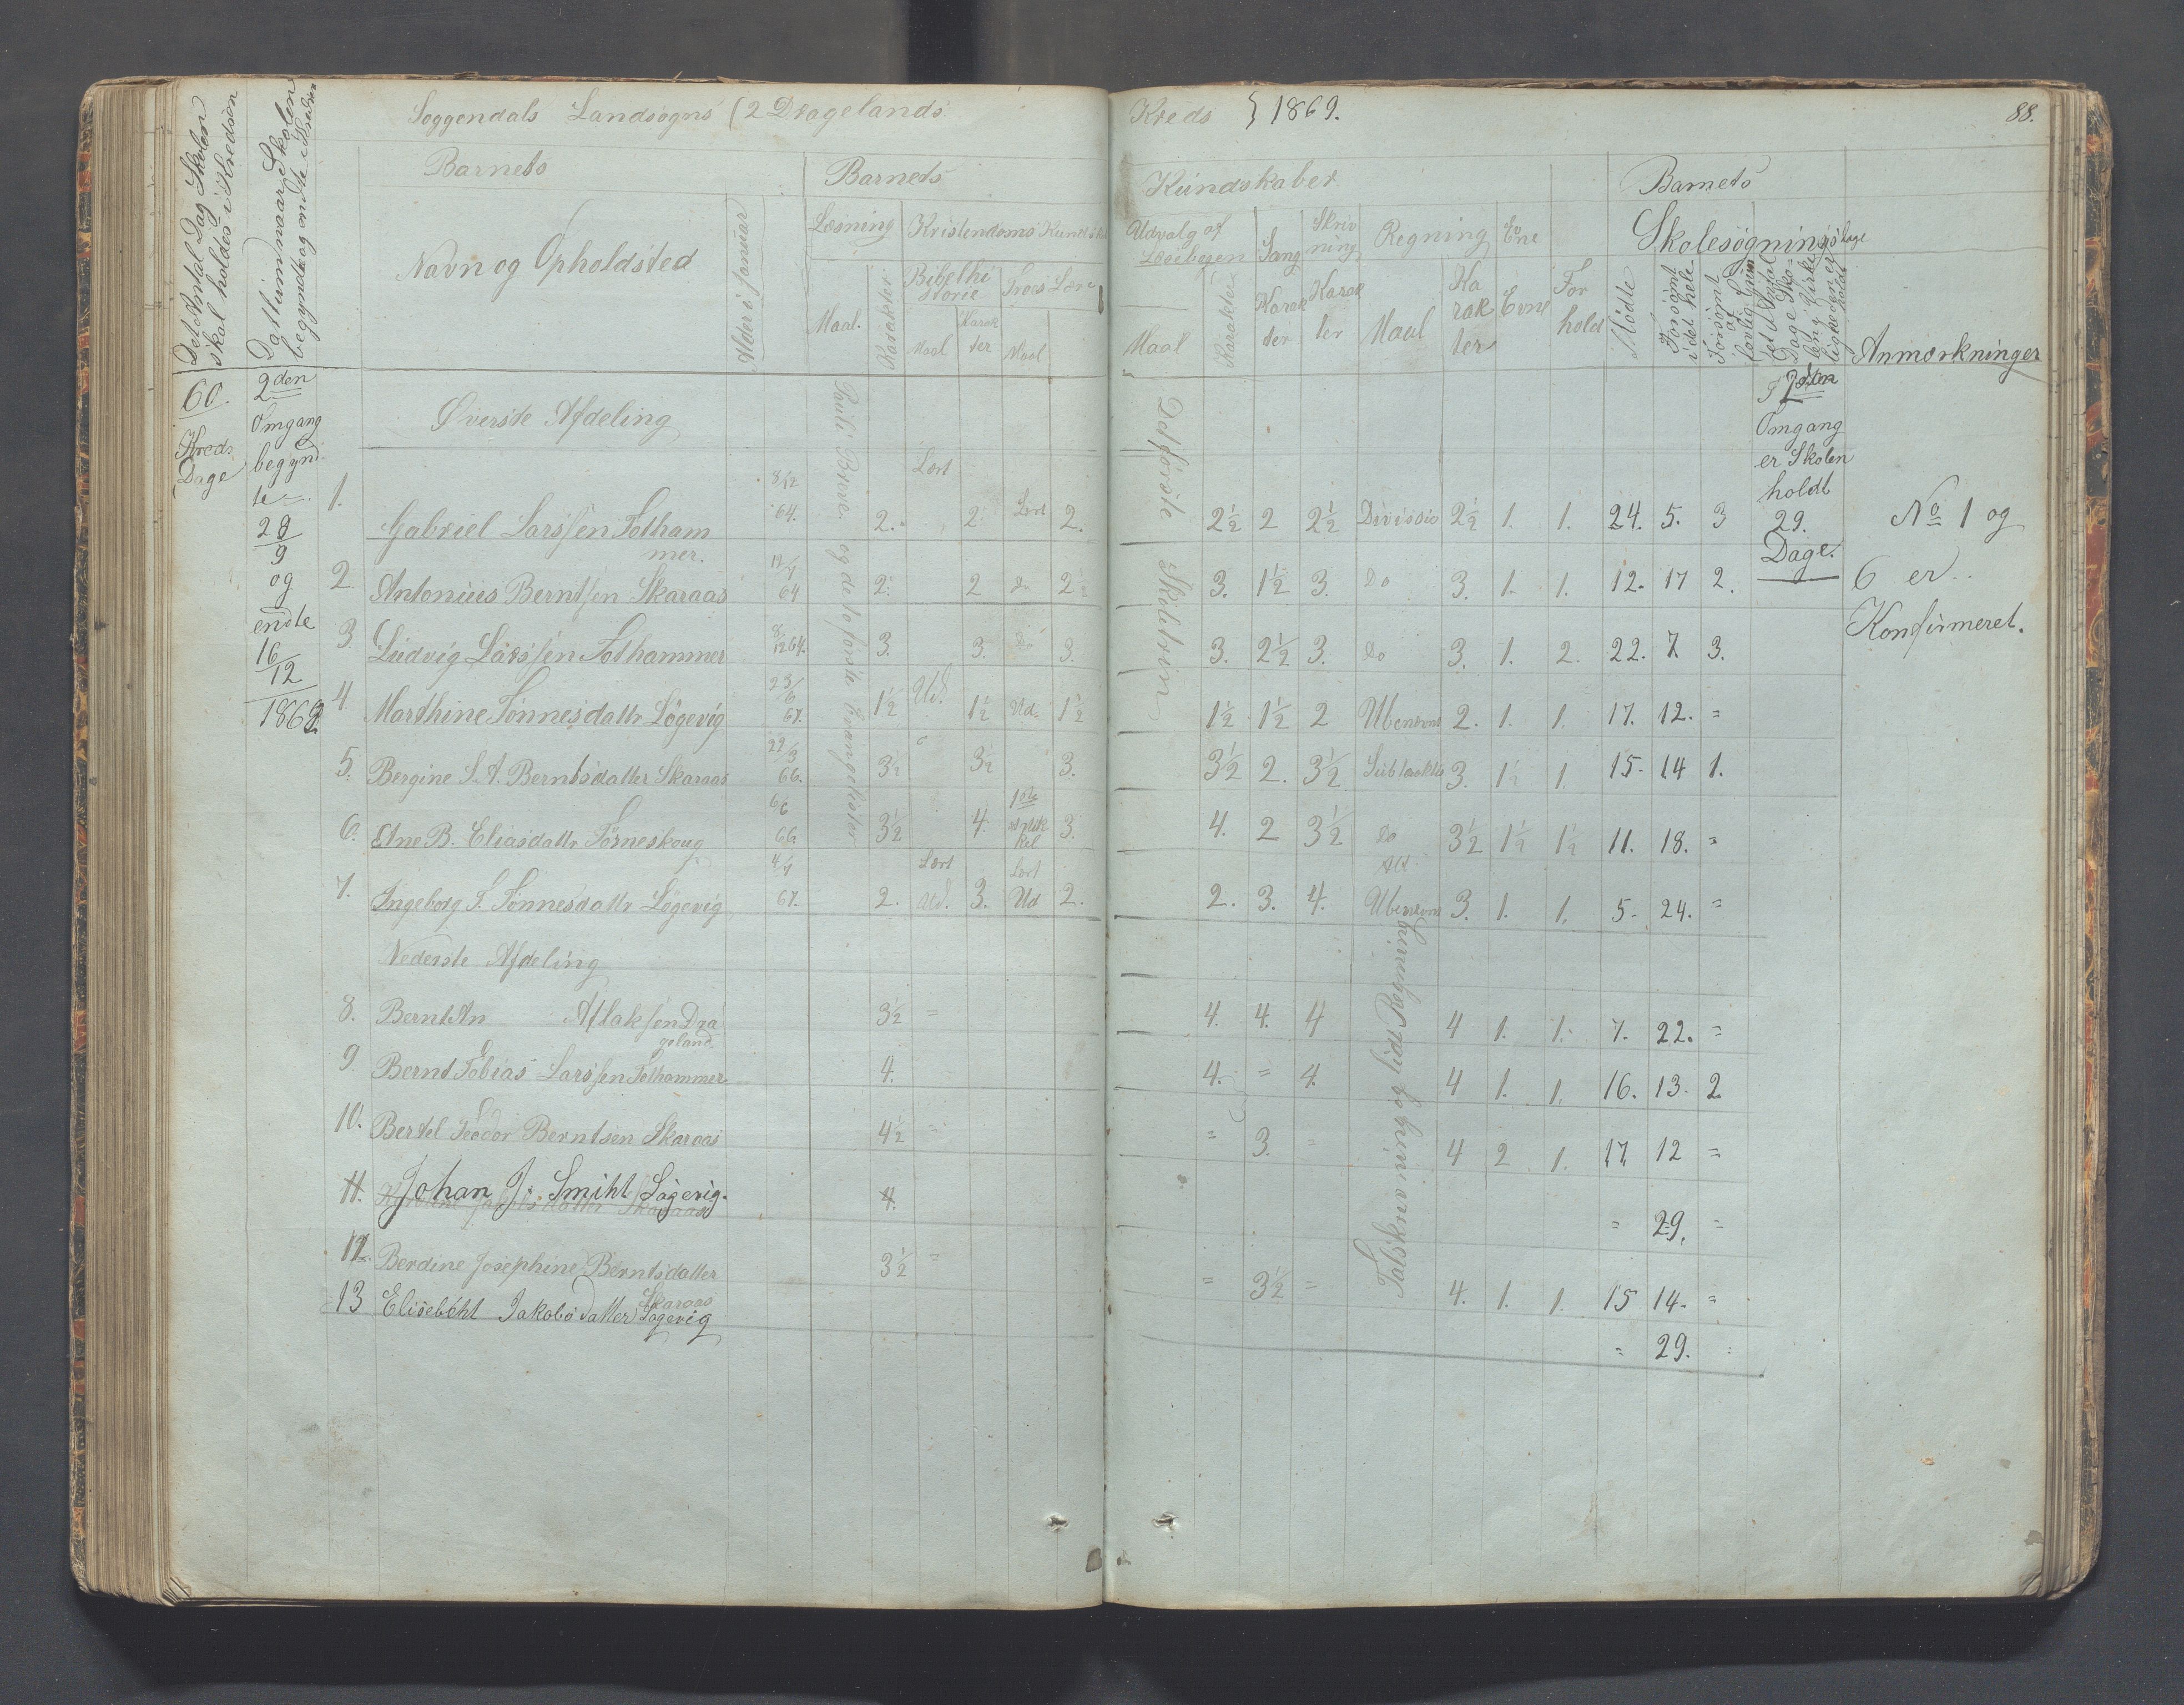 Soggendals Landsogns (2 Dragelands Kreds } 1869. 88.
Det Antal Dag Skolen
skal holdes i Kredsen
Datum naar Skolen
begyndte og endte i Kredsen
Barnets
Navn og Opholdsted
Alder i Januar
Barnets Kundskaber
Læsning
Maal.
Karakter
Kristendoms Kundska
Bibelhi
storie
Maal
Karak
ter
Troes Lære
Maal
Udvalg af
Læsebogen
Maal
Karakter
Sang
Karak
ter
Skriv
ning
Karak
ter
Regning
Maal
Ka
rak
ter
Evne
Evne
For
hold
Barnets
Skolesøgningsdage
Mødte
Forsømt
i det hele
Forsømt
af
lovlig Grund
Det Antal
Dage Sko-
len i Virke
ligheden er
holdt
Anmærkninger
60.
Kreds
Dage
2den
Omgang
begynd
te
28
9
og
endte
16
12
1869.
Øverste Afdeling
Pauli Breve og de to første Evangelister
Det første Skoletrin
I 2den
Omgang
er Skolen
holdt
29.
Dage.
No 1 og
6 er.
Konfirmeret.
1. Gabriel Larssen Totham
mer. 8/12 64. 2. Lært 2. Lært 2. 2½ 2 2½ Divissio 2½ 1. 1. 24. 5. 3
2. Antonius Berntsen Skaraas 64 2. 2 do 2½ 3. 1½ 3. do 3. 1. 1. 12. 17 2.
3. Ludvig Larssen Tothammer 8/12 64. 3. 3. do 3. 3. 2½ 3. do 3. 1. 2. 22. 7. 3.
4. Marthine Tønnesdattr Løgevig 23/6 67. 1½ Ud. 1½ Ud. 1½ 1½ 1½ 2 Ubenævnt 2. 1. 1. 17. 12. =
5. Bergine S. A. Berntsdatter Skaraas 22/3 66. 3½ 3½ 3. 3½ 2. 3½ Subtraktio 3. 1½ 1. 15. 14 1.
6. Etne B. Eliasdattr Tørneskoug 6/6 66. 3½ 4. 1ste Artik
kel 3. 4. 2 3½ do 3½ 1½ 1½ 11. 18. =
7. Ingeborg T. Tønnesdattr Løgevig 67. 2. Lært Ud. 3. Lært Ud 2. 2. 3. 4. Ubenævnt 3. 1. 1. 5. 24. =
Nederste Afdeling
Talskrivning og lidt Regning
8. Bernt An Aslaksen Dra
geland. 3½ = 4. 4. 4 4 1. 1. 7. 22. =
9. Bernt Tobias Larssen Tothammer 4. 4. = 4. 4 1. 1. 16. 13. 2
10. Bertel Teodor Berntsen Skaraas 4½ = = 3. = 4 2 1. 17. 12 =
11. Johan J. Smiht Løgevig. 4. = 29. =
12. Berdine Josephine Berntsdatter
Skaraas 3½ = = 3½ = 4. 1. 1. 15 14. =
13 Elisebeht Jakobsdatter Løgevig = 29. =